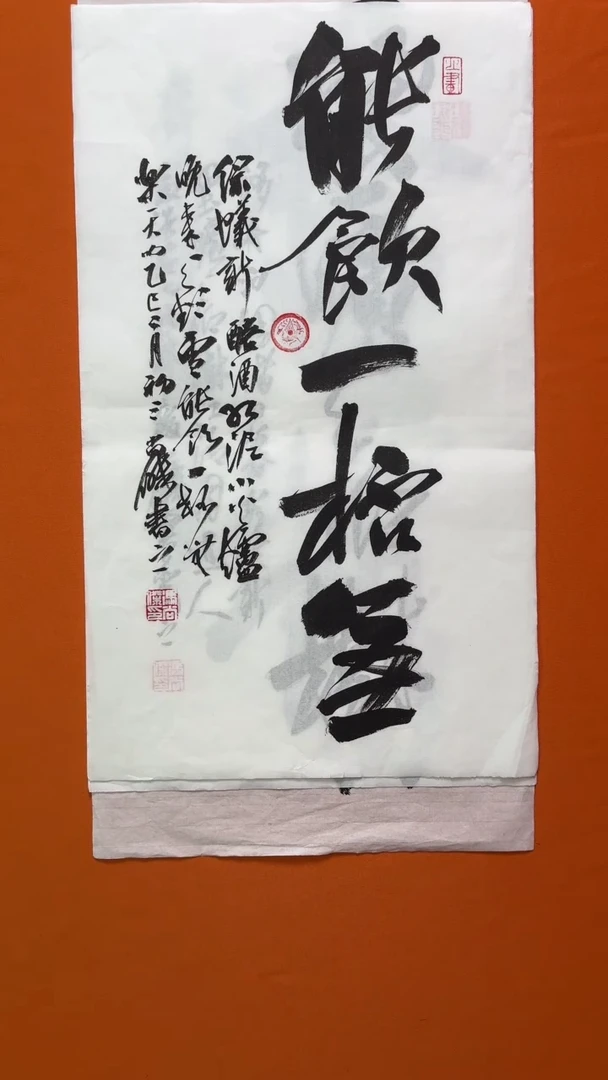 能飲一桮無
綠蟻新醅酒紅泥小火爐
晚來天欲雪能飲一杯無
樂天句乙巳二月初三書之